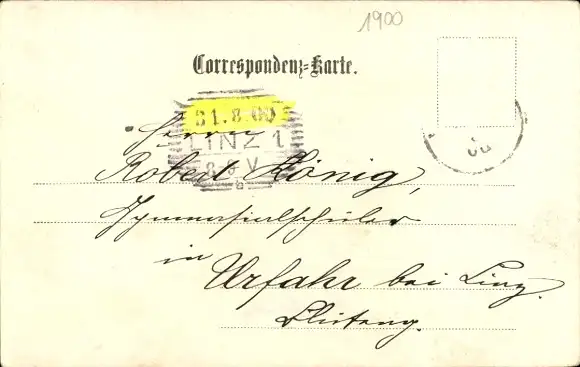 1900
Correspondenz-Karte.
31.8.00
LINZ 1
8-9 V
Herrn
Robert König,
Gymnasialschüler
in
Urfahr bei Linz.